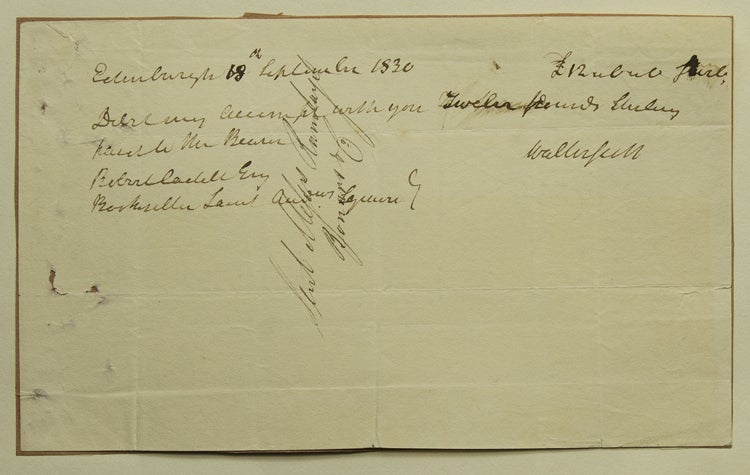 Edinburgh 18th September 1830 £12 u o u o Sterl,
Debit my account with you Twelve pounds Sterling
paid to the Bearer
Walter Scott
Robert Cadell Esq
Bookseller Saint Andrews Square
Messrs Ramsays
Bonars & Co